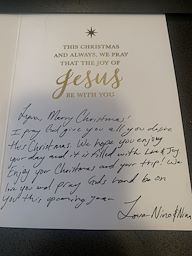 THIS CHRISTMAS
AND ALWAYS, WE PRAY
THAT THE JOY OF
Jesus
BE WITH YOU
Lynn, Merry Christmas!
I pray God give you all you desire
this Christmas. We hope you enjoy
your day and it is filled with Love & Joy
Enjoy your Christmas and your trip! We
love you and pray Gods hand be on
you this upcoming year.
Love Nino & Nina